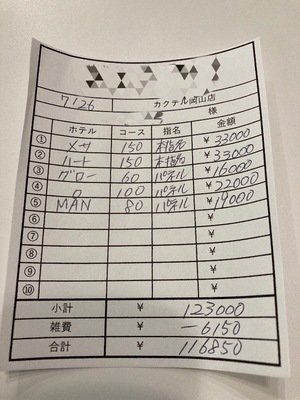 7/26 カクテル岡山店
様
ホテル コース 指名 金額
① メサ 150 本指名 ¥33000
② ハート 150 本指名 ¥33000
③ グロー 60 パネル ¥16000
④ 〃 100 パネル ¥22000
⑤ MAN 80 パネル ¥19000
⑥
⑦
⑧
⑨
⑩
小計 ¥ 123000
雑費 ¥ -6150
合計 ¥ 116850